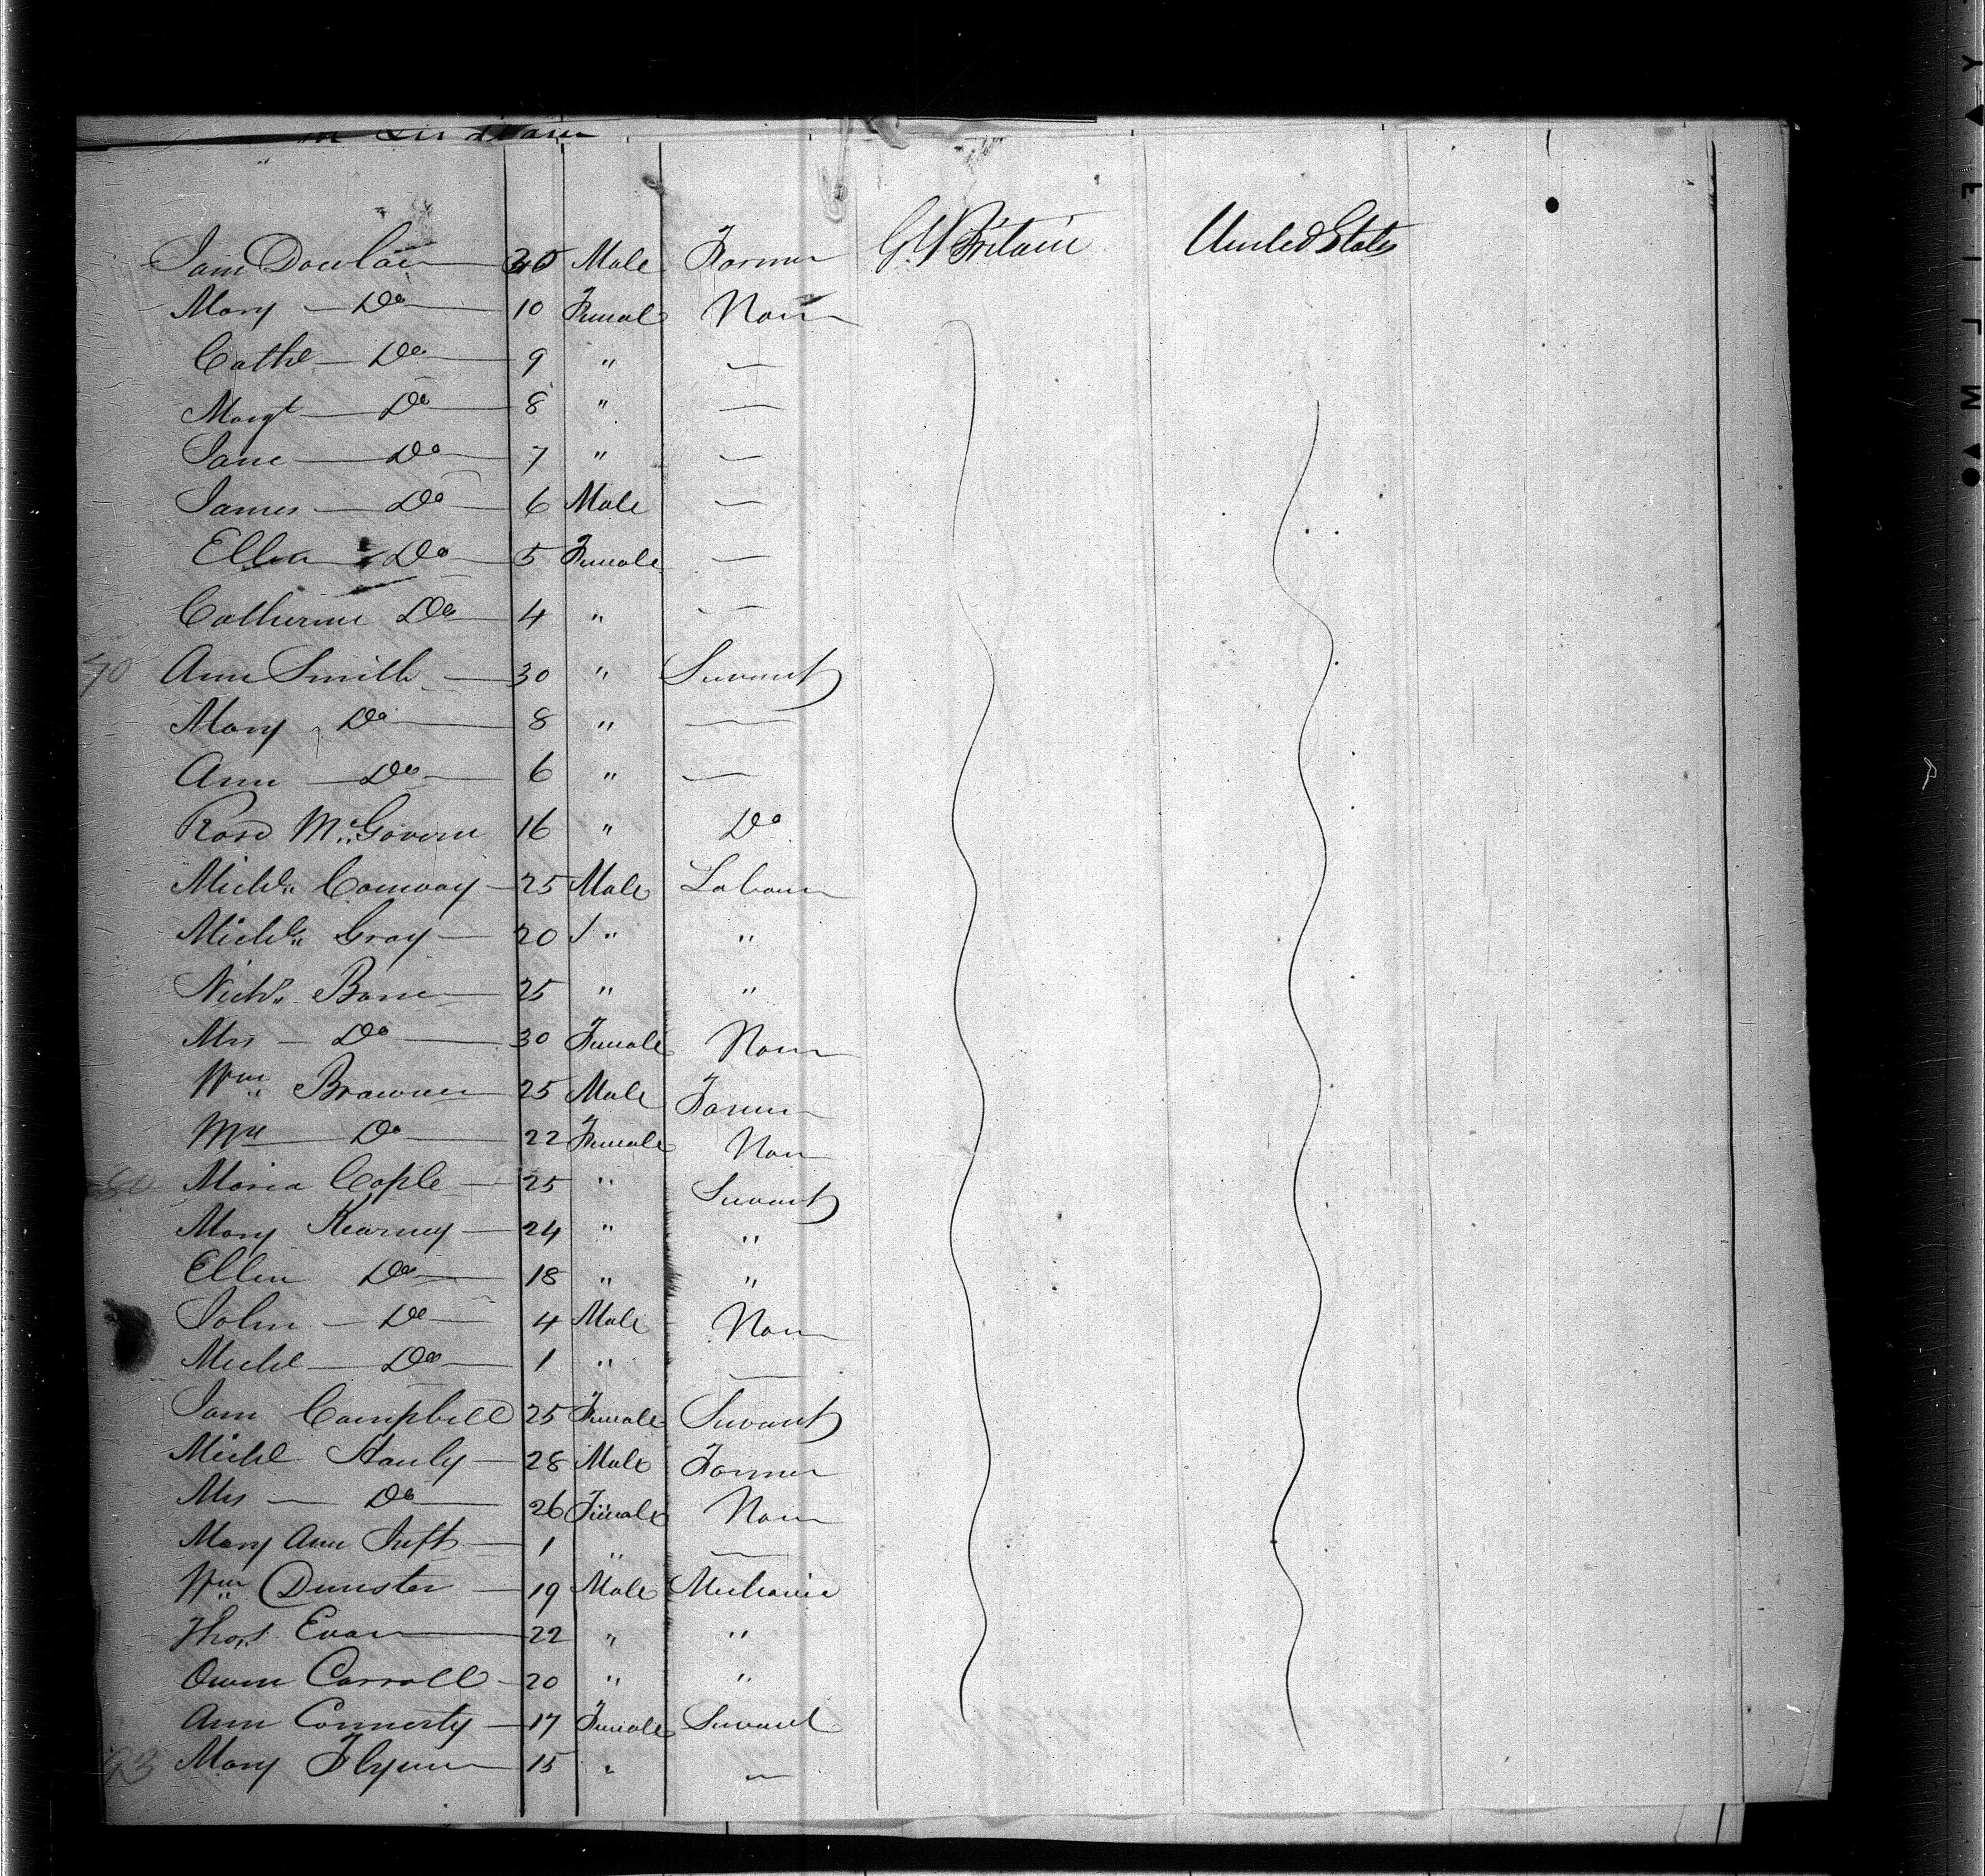 Jam Dowlan 30 Male Farmer Gt Britain United States
Mary Do 10 Female None
Cathe Do 9 "
Margt Do 8 "
Jane Do 7 "
James Do 6 Male
Ellen Do 5 Female
Catherine Do 4 "
70 Ann Smith 30 " Servant
Mary Do 8 "
Ann Do 6 "
Rose McGovern 16 " Do
Michl Conway 25 Male Labour
Michl Gray 20 " "
Nichs 25 " "
Mrs Do 30 Female None
Wm Brawner 25 Male Farmer
Mrs Do 22 Female None
80 Maria Cople 25 " Servant
Mary Kearney 24 " "
Ellen Do 18 " "
John Do 4 Male None
Michl Do 1 "
Jam Campbell 25 Female Servant
Michl Hanly 28 Male Farmer
Mrs Do 26 Female None
Mary Ann Inft 1 "
Wm Dunster 19 Male Mechanic
Thos Evan 22 " "
Owen Carroll 20 " "
Ann Connerty 17 Female Servant
93 Mary Flynn 15 "